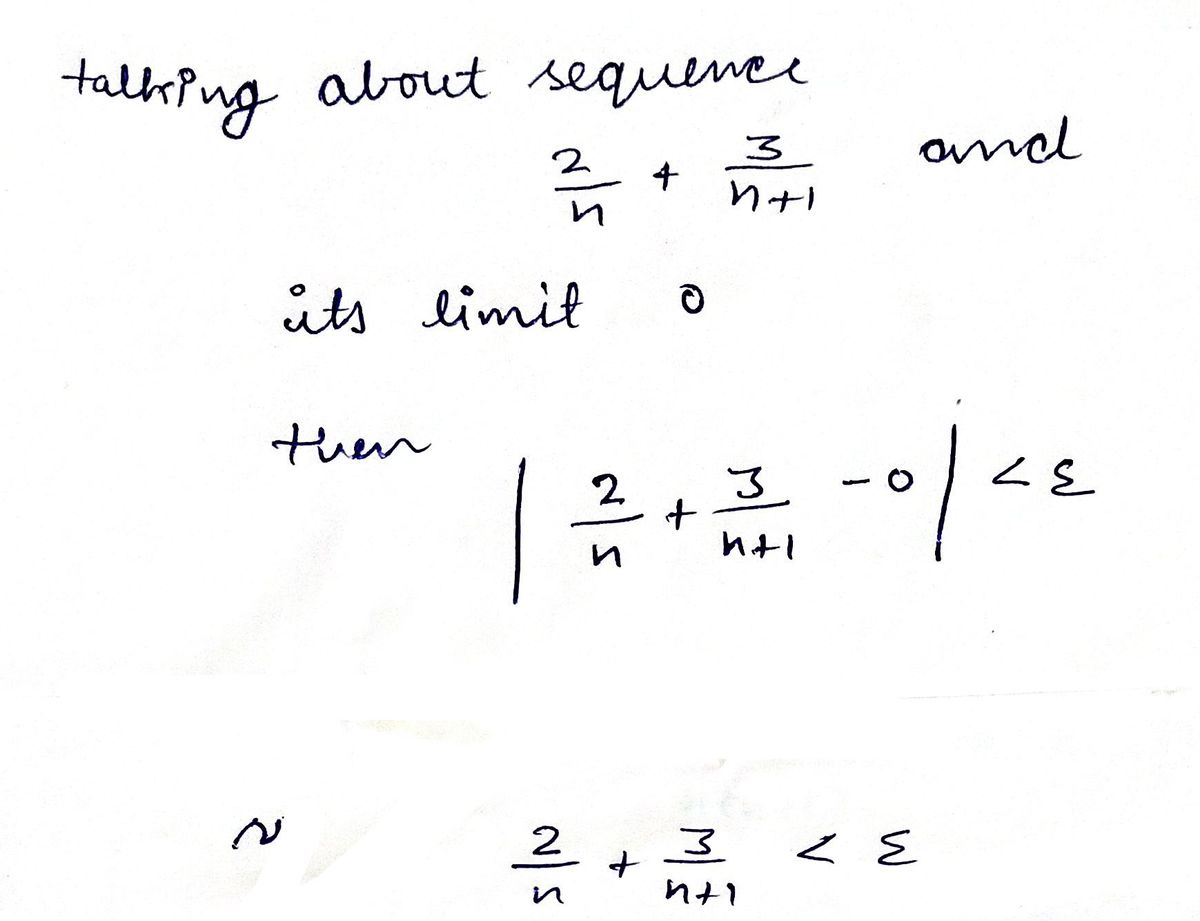 talking about sequence
2/n + 3/(n+1) and
its limit 0
then | 2/n + 3/(n+1) - 0 | < ε
2/n + 3/(n+1) < ε